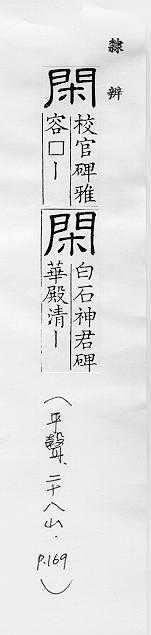 隸辨
閑
校官碑雅
容□丨
閑
白石神君碑
華殿清丨
(平聲.二十八山.p.169)